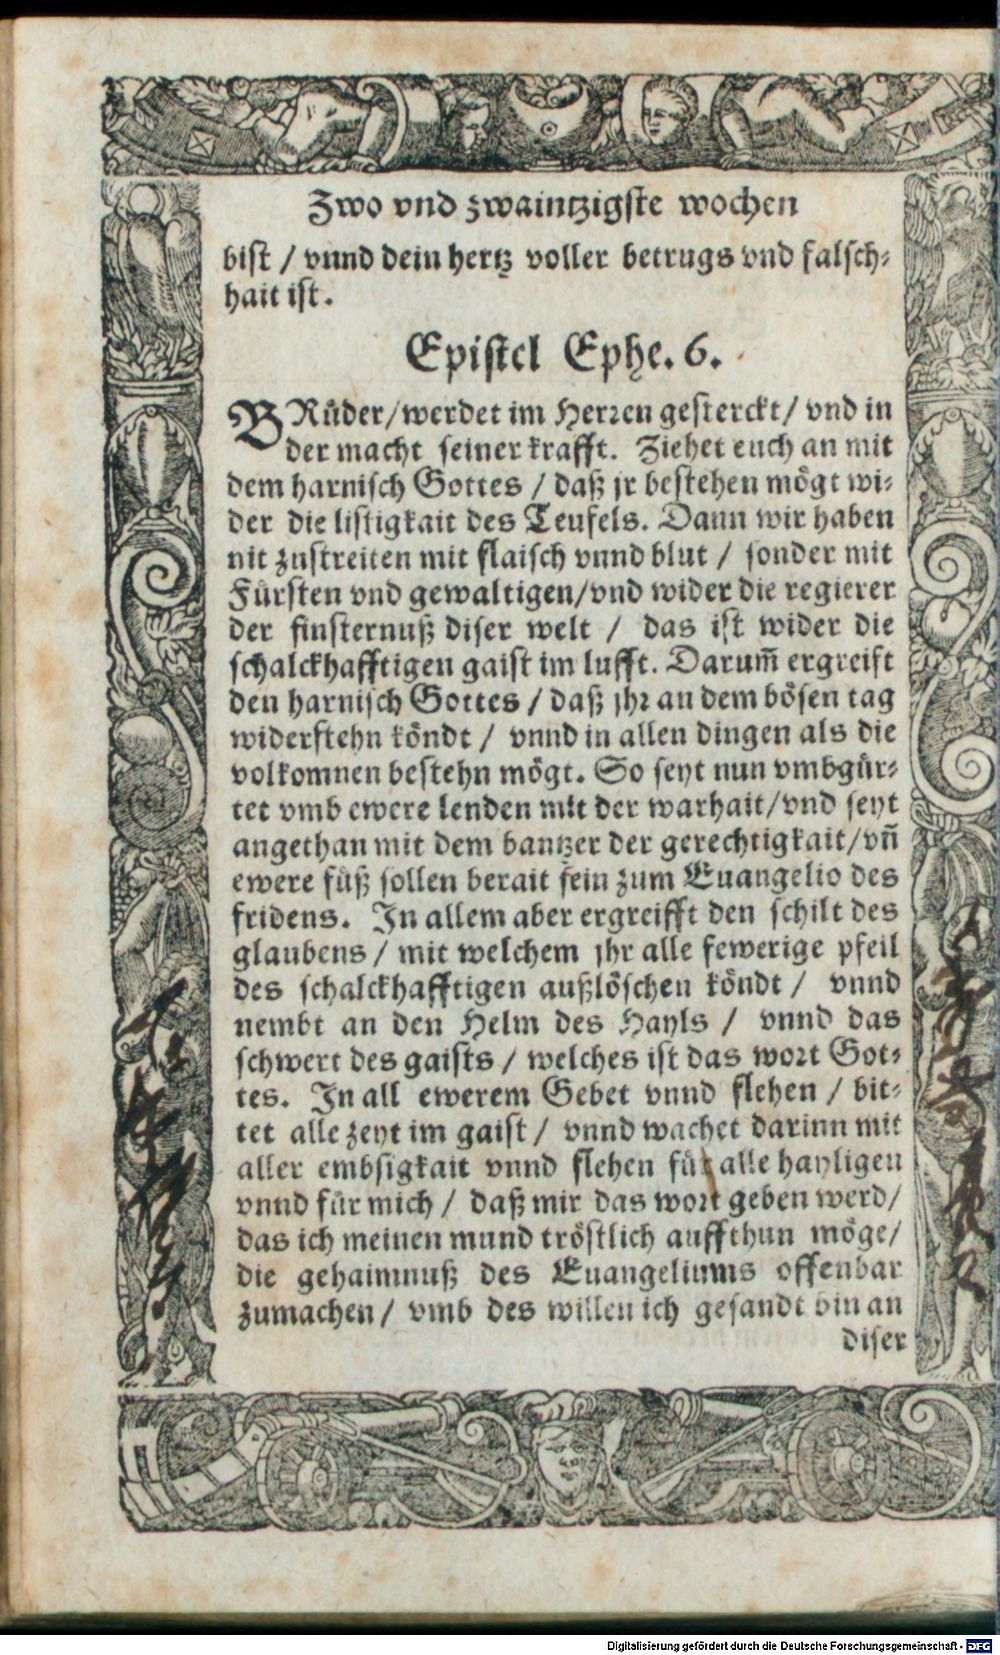 Zwo vnd zwaintzigste wochen
bist / vnnd dein hertz voller betrugs vnd falsch⸗
hait ist.
Epistel Ephe. 6.
BRůder/werdet im Herren gesterckt/ vnd in
der macht seiner krafft. Ziehet euch an mit
dem harnisch Gottes / daß jr bestehen mögt wi⸗
der die listigkait des Teufels. Dann wir haben
nit zustreiten mit flaisch vnnd blut / sonder mit
Fürsten vnd gewaltigen/vnd wider die regierer
der finsternuß diser welt / das ist wider die
schalckhafftigen gaist im lufft. Darum̃ ergreift
den harnisch Gottes / daß jhr an dem bösen tag
widerstehn köndt / vnnd in allen dingen als die
volkomnen bestehn mögt. So seyt nun vmbgür⸗
tet vmb ewere lenden mit der warhait/vnd seyt
angethan mit dem bantzer der gerechtigkait/vñ
ewere füß sollen berait sein zum Euangelio des
fridens. In allem aber ergreifft den schilt des
glaubens / mit welchem jhr alle fewerige pfeil
des schalckhafftigen außlöschen köndt / vnnd
nembt an den Helm des Hayls / vnnd das
schwert des gaists / welches ist das wort Got⸗
tes. In all ewerem Gebet vnnd flehen / bit⸗
tet alle zeyt im gaist / vnnd wachet darinn mit
aller embsigkait vnnd flehen für alle hayligen
vnnd für mich / daß mir das wort geben werd/
das ich meinen mund tröstlich auffthun möge/
die gehaimnuß des Euangeliums offenbar
zumachen / vmb des willen ich gesandt bin an
diser
Digitalisierung gefördert durch die Deutsche Forschungsgemeinschaft - DFG